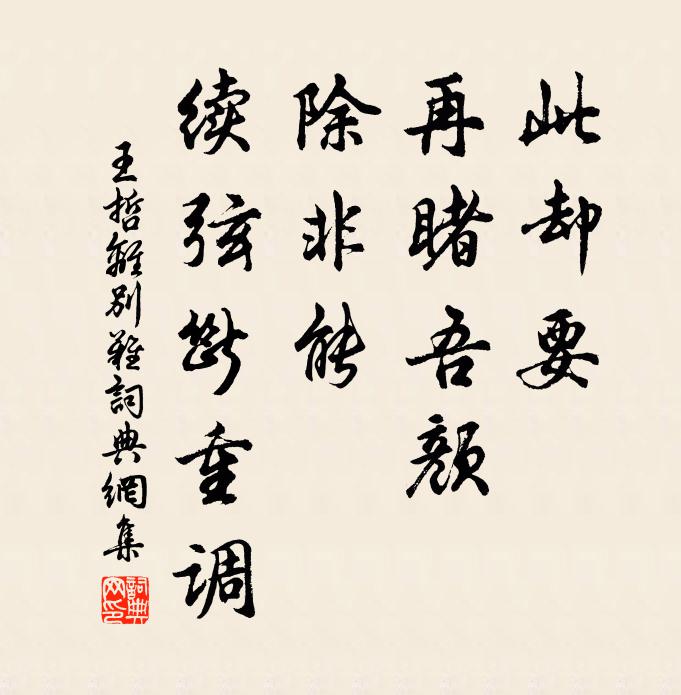 此却要
再睹吾颜
除非能
续弦断重调
王哲離别難詞典網集
詞典网印